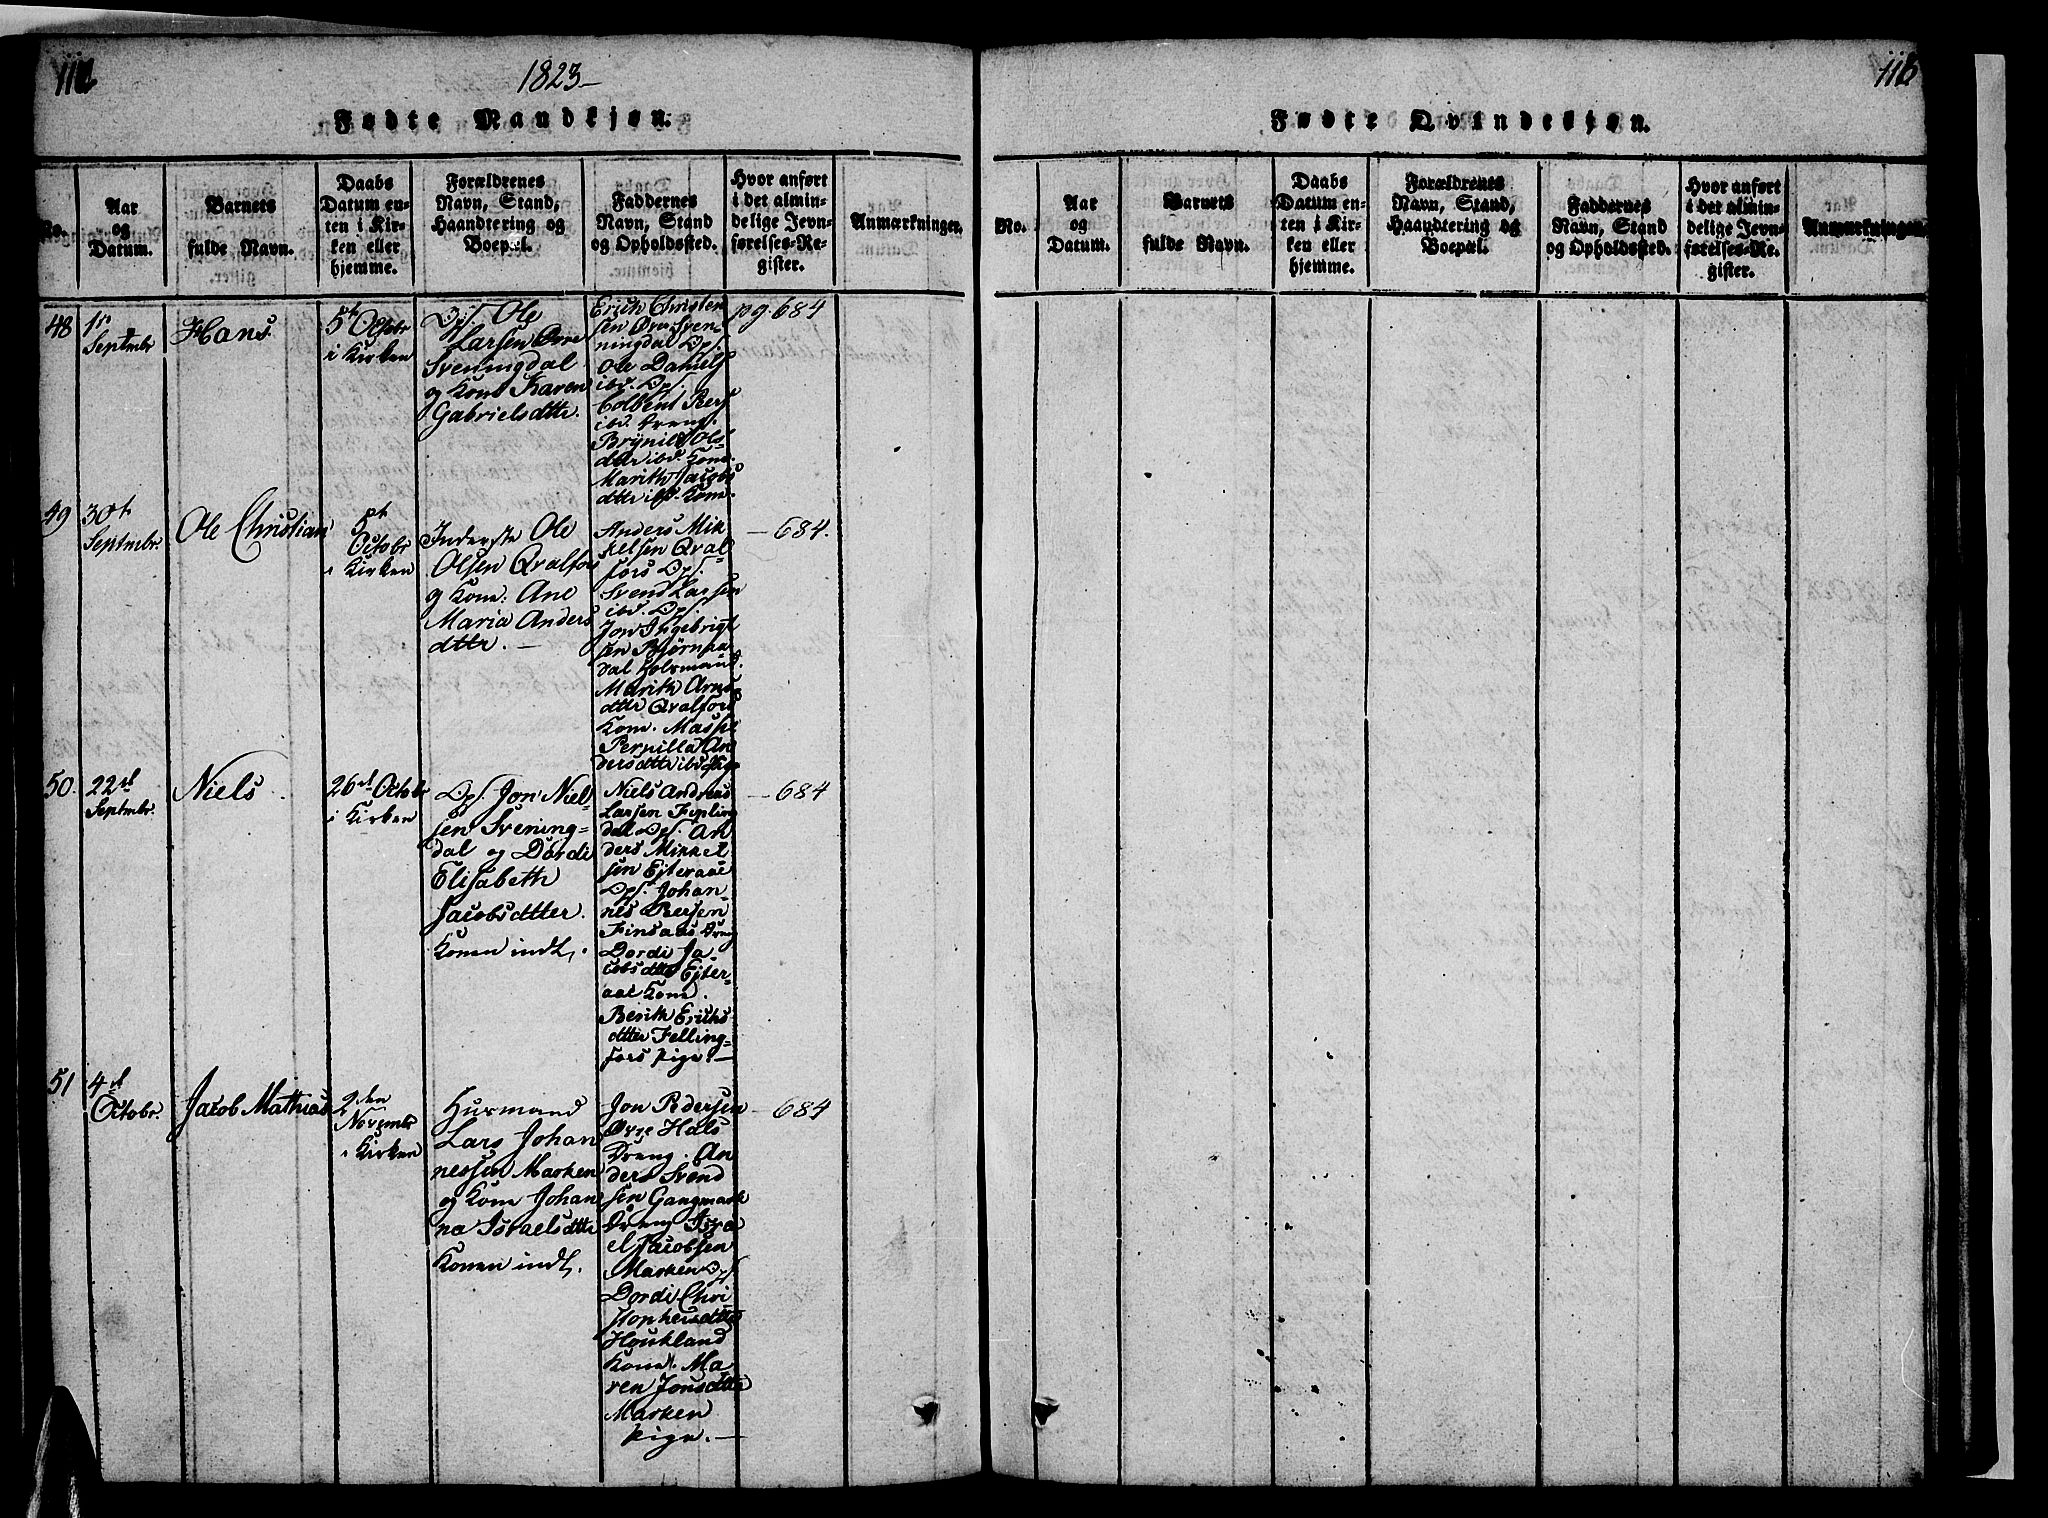 1823
Fødte Mandkjøn.
No.
Aar
og
Datum.
Barnets
fulde Navn.
Daabs
Datum en-
ten i Kir-
ken eller
hjemme.
Forældrenes
Navn, Stand,
Haandtering og
Boepæl.
Faddernes
Navn, Stand
og Opholdssted.
Hvor anført
i det almin-
delige Jevn-
førelses-Re-
gister.
Anmærkninger.
48
Septembr
Hans
5t Octobr
i Kirken
Ops. Ole
Larsen Øvre
Sveningdal
og Kone Karen
Gabrielsdttr.
Erich Christen
sen Øvre Sven-
ningdal Ops.
Ole Daniels
ibd. Ops.
ibd. Dreng.
Brynild Ols-
dttr ibd. Kone.
Marith Jacobs
dttr ibd. Kone.
pg. 684
49
30t
Septembr.
Ole Christian
5t
Octobr
i Kirken
Inderste Ole
Olsen Qvalfors
og Kone: Ane
Maria Anders
dttr. —
Anders Mik
kelsen Qval-
fors Ops.
Svend Larsen
ibd. Ops.
Jon Ingebrigt
sen Bjørnaa
dal
Marith Arns
dttr Qvalfors
Kone.
Pernilla An
dersdttr ibd Pige
— 684.
50.
22d
Septembr.
Niels
26d Octobr
i Kirken
Ops. Jon Niel-
sen Svening-
dal og Dordi
Elisabeth
Jacobsdtter.
Konen indl.
Niels Andreas
Larsen Fipling
dal Ops. An
ders Mikkel
sen Ejteraae
Ops. Johan-
nes Persen
Finsaas Dreng
Dordi Ja-
cobsdttr Ejter-
aae Kone.
Berith Erichs
dttr Felling-
fors Pige. —
— 684
51
4d
Octobr.
Jacob Mathias
2den
Novembr
i Kirken
Husmand
Lars Johan
nessen Marken
og Kone Johan
na Israelsdttr
Konen indl.
Jon Pedersen
Øvre Hals
Dreng. An
ders Svend
sen Gangmark
Dreng Isra
el Jacobsen
Marken Ops
Dordi Chri
stophersdttr
Houkland
Kone. Ma
ren Jonsdttr
Marken
Pige. —
— 684
118
Fødte Qvindekjøn.
No.
Aar
og
Datum.
Barnets
fulde Navn.
Daabs
Datum en-
ten i Kir-
ken eller
hjemme.
Forældrenes
Navn, Stand,
Haandtering og
Boepæl.
Faddernes
Navn, Stand
og Opholdssted.
Hvor anført
i det almin-
delige Jevn-
førelses-Re-
gister.
Anmærkninger.